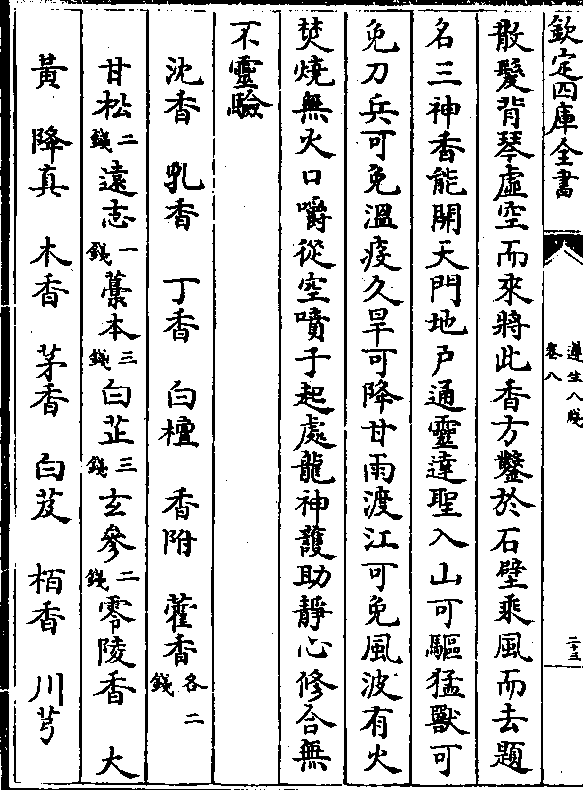 欽定四庫全書
遵生八牋
卷八
二十三
散髮背琴虛空而來將此香方鑿於石壁乘風而去題
名三神香能開天門地戶通靈達聖入山可驅猛獸可
免刀兵可免溫疫久旱可降甘雨渡江可免風波有火
焚燒無火口嚼從空噴于起處龍神護助靜心修合無
不靈驗
沈香 乳香 丁香 白檀 香附 藿香各二錢
甘松二錢 遠志一錢 藁本三錢 白芷三錢 玄參二錢 零陵香 大
黃 降真 木香 茅香 白芨 栢香 川芎